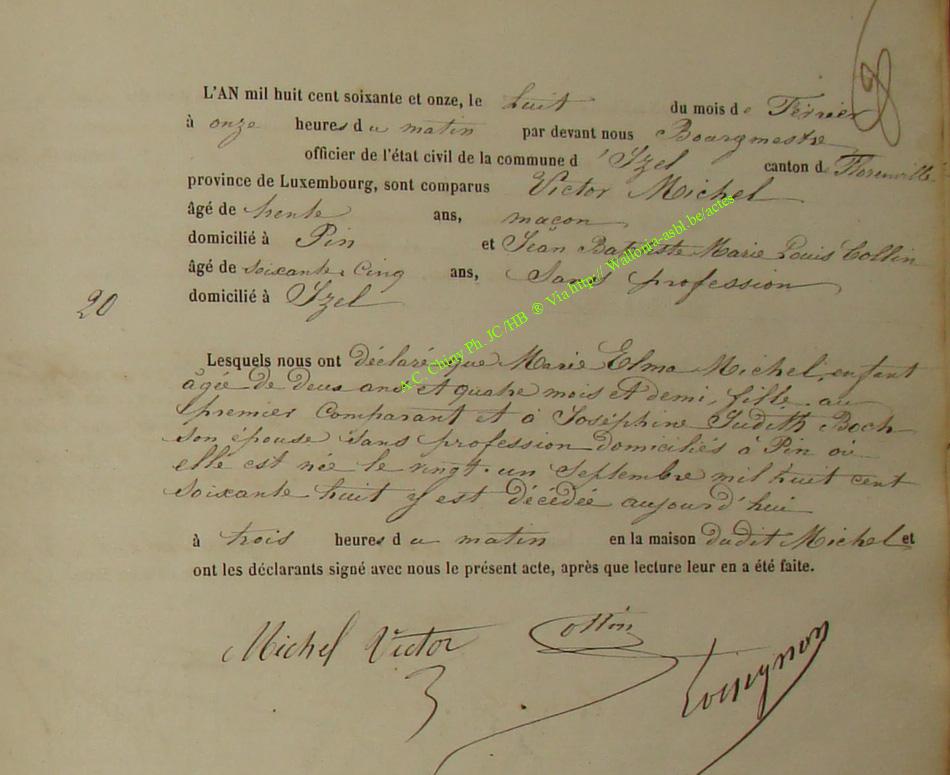 8
L'AN mil huit cent soixante et onze, le huit du mois de Février
à onze heures du matin par devant nous Bourgmestre
officier de l'état civil de la commune d'Izel canton de Florenville
province de Luxembourg, sont comparus Victor Michel
âgé de trente ans, maçon
domicilié à Pin et Jean Batiste Marie Louis Collin
âgé de soixante cinq ans, Sans profession
20 domicilié à Izel
Lesquels nous ont déclaré que Marie Elma Michel, enfant
âgée de deux ans et quatre mois et demi, fille au
premier comparant et à Joséphine Judith Boch
son épouse sans profession domiciliés à Pin où
elle est née le vingt-un Septembre mil huit cent
soixante huit y est décédée aujourd'hui
à trois heures du matin en la maison dudit Michel et
ont les déclarants signé avec nous le présent acte, après que lecture leur en a été faite.
Michel Victor Collin
A.C. Chiny Ph. JC/HB ® Via http// Wallonia-asbl.be/actes